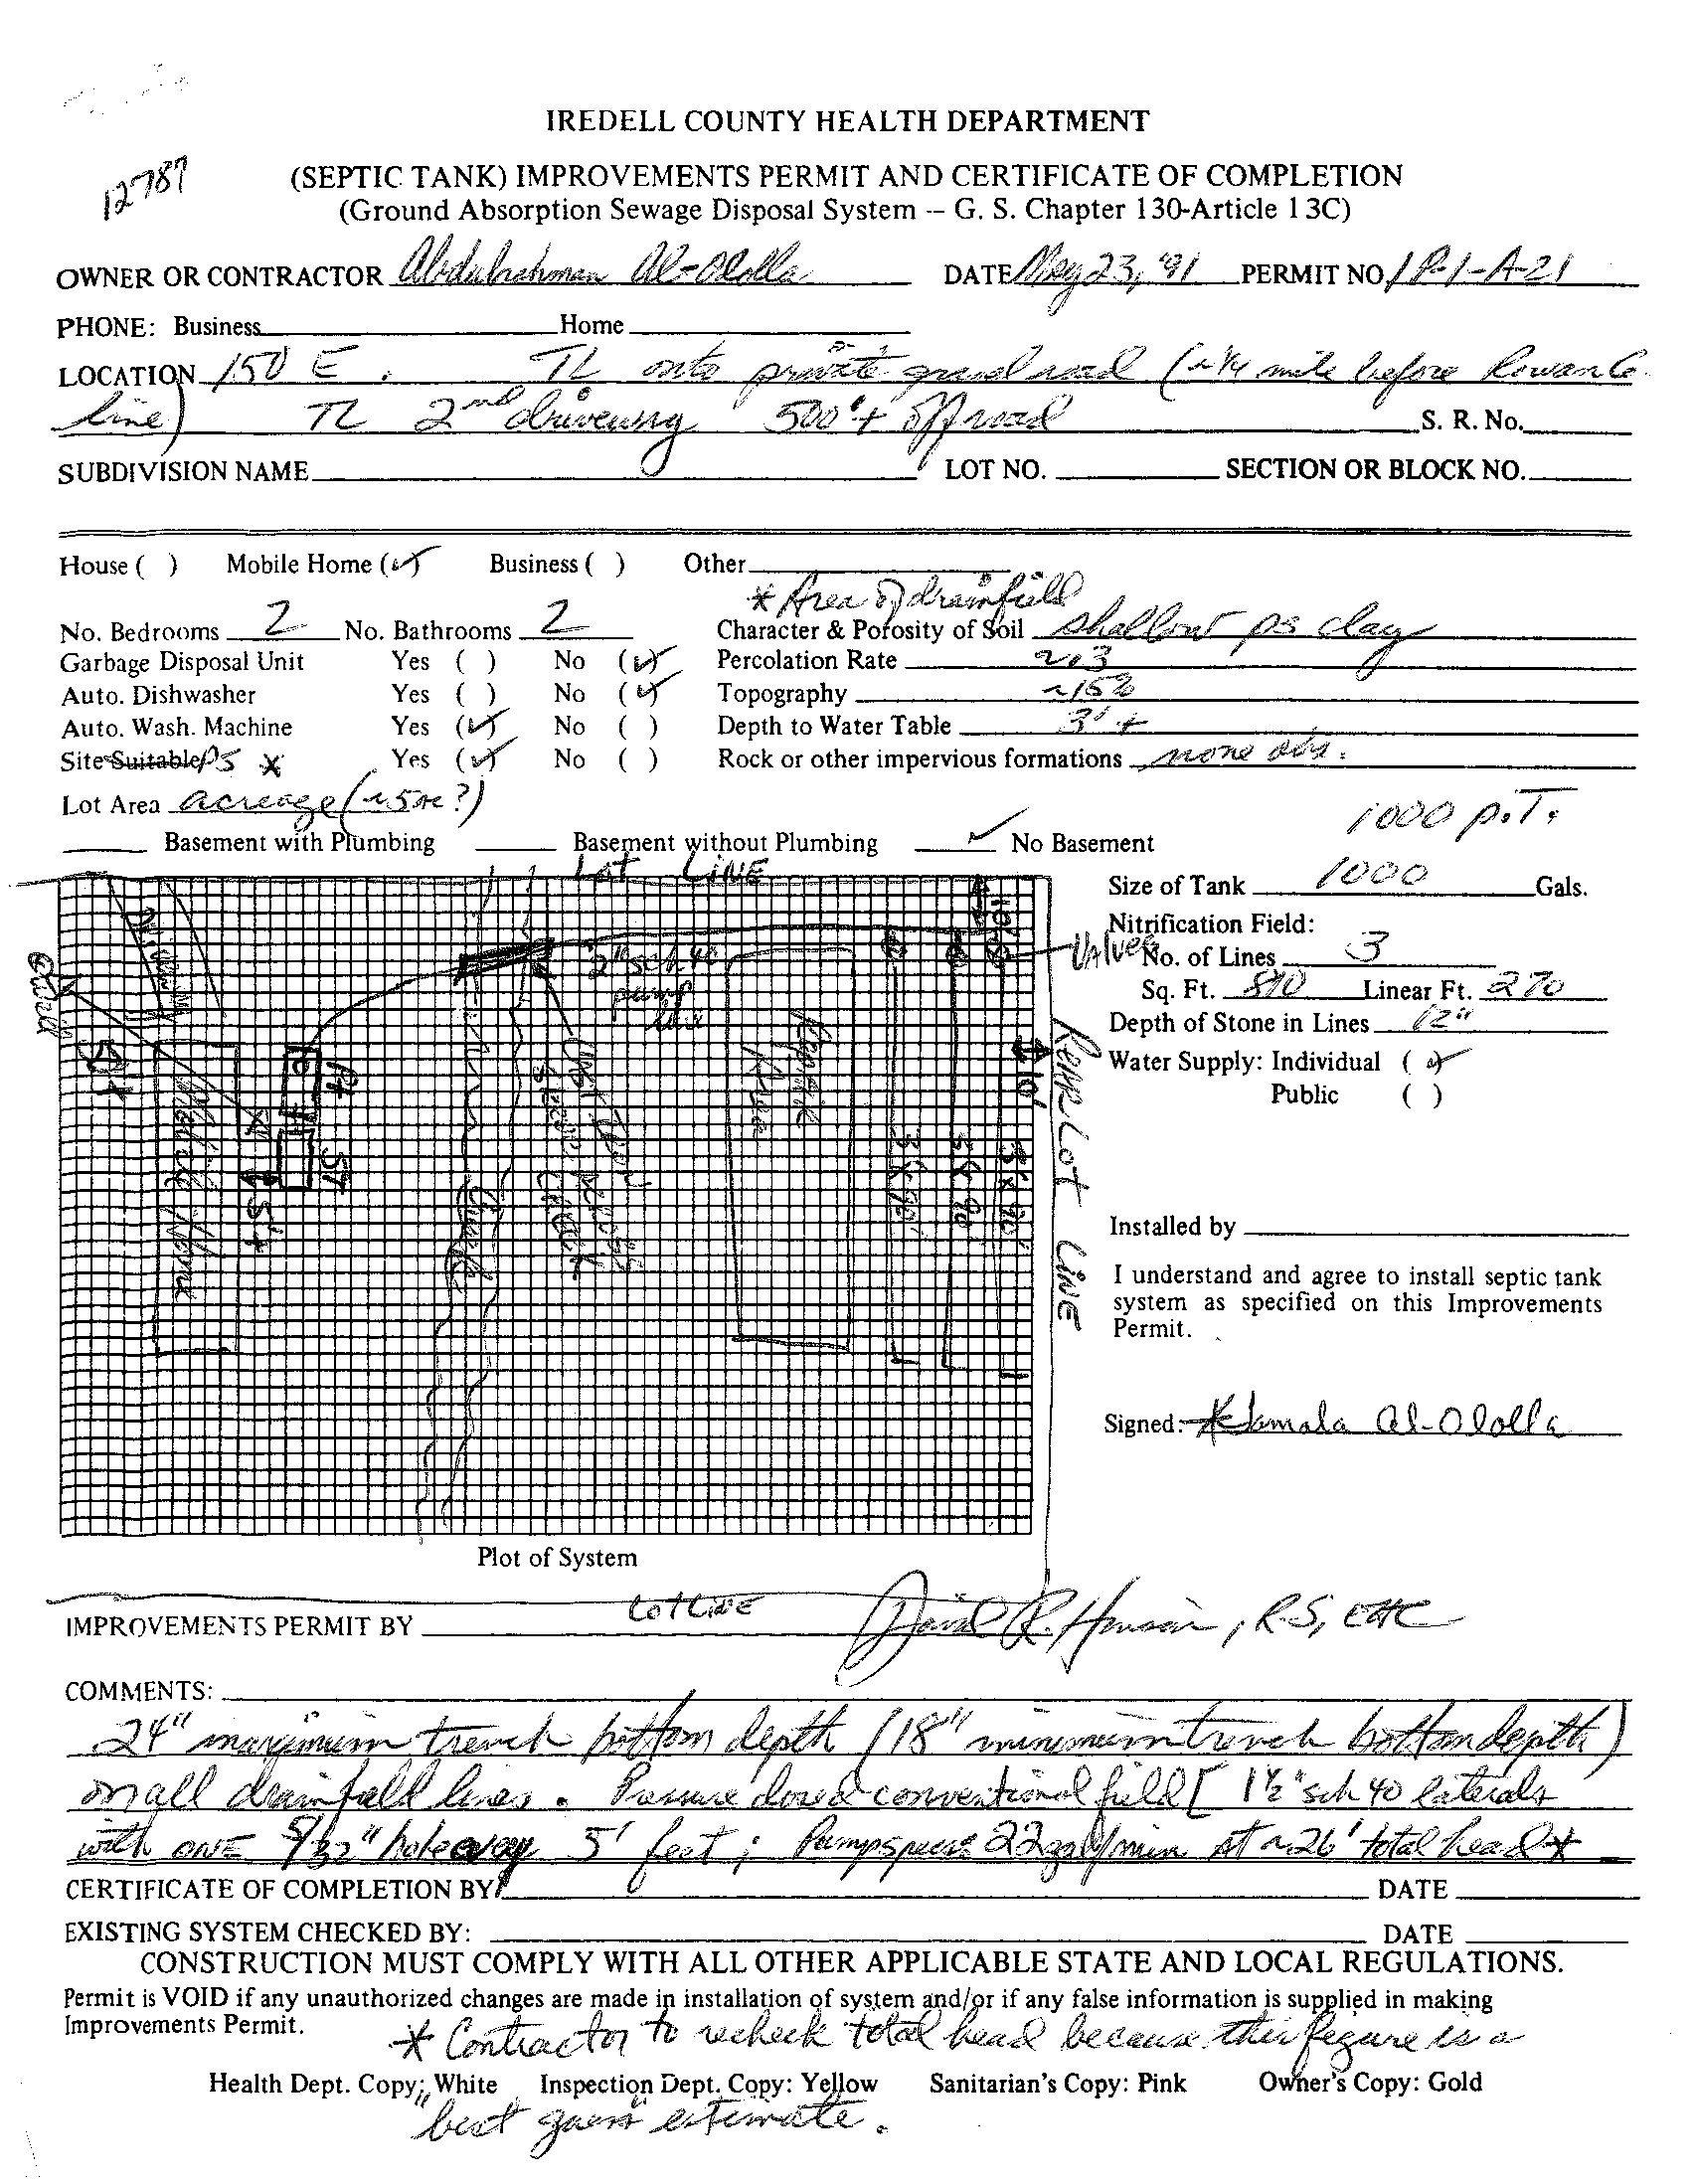 IREDELL COUNTY HEALTH DEPARTMENT
12787
(SEPTIC TANK) IMPROVEMENTS PERMIT AND CERTIFICATE OF COMPLETION
(Ground Absorption Sewage Disposal System -- G. S. Chapter 130-Article 13C)
OWNER OR CONTRACTOR Abdulrahman Al-Ololla DATE May 23, '91 PERMIT NO. IP-1-A-21
PHONE: Business Home
LOCATION 150 E. TL onto private gravel road (~1/4 mile before Rowan Co.
line) TL 2nd driveway 500'+ off road S. R. No.
SUBDIVISION NAME LOT NO. SECTION OR BLOCK NO.
House ( ) Mobile Home (✓) Business ( ) Other
* Area of drainfield
No. Bedrooms 2 No. Bathrooms 2 Character & Porosity of Soil shallow ps clay
Garbage Disposal Unit Yes ( ) No (✓) Percolation Rate ~.3
Auto. Dishwasher Yes ( ) No (✓) Topography ~15%
Auto. Wash. Machine Yes (✓) No ( ) Depth to Water Table 3'+
Site Suitable PS * Yes (✓) No ( ) Rock or other impervious formations none obs.
Lot Area acreage (~5ac?)
1000 P.T.
Basement with Plumbing Basement without Plumbing ✓ No Basement
LOT LINE
Size of Tank 1000 Gals.
Nitrification Field:
VALVES
No. of Lines 3
Sq. Ft. 810 Linear Ft. 270
Depth of Stone in Lines 12"
Water Supply: Individual (✓)
Public ( )
2" sch 40
pump
line
Repair
Area
Mobile Home
PT
ST
5'+
Creek
3 x 90'
3 x 90'
3 x 90'
10'
10'
REAR LOT LINE
Installed by
I understand and agree to install septic tank
system as specified on this Improvements
Permit.
Signed: Hamala Al-Ololla
Plot of System
LOT LINE
IMPROVEMENTS PERMIT BY David R. Henson, R.S., EHC
COMMENTS:
24" maximum trench bottom depth (18" minimum trench bottom depth)
on all drainfield lines. Pressure dosed conventional field [1½" sch 40 laterals
with ONE 5/32" hole every 5' feet; Pump specs: 22 gal/min at ~26' total head *
CERTIFICATE OF COMPLETION BY DATE
EXISTING SYSTEM CHECKED BY: DATE
CONSTRUCTION MUST COMPLY WITH ALL OTHER APPLICABLE STATE AND LOCAL REGULATIONS.
Permit is VOID if any unauthorized changes are made in installation of system and/or if any false information is supplied in making
Improvements Permit.
* Contractor to recheck total head because this figure is a
Health Dept. Copy: White Inspection Dept. Copy: Yellow Sanitarian's Copy: Pink Owner's Copy: Gold
"best guess" estimate.